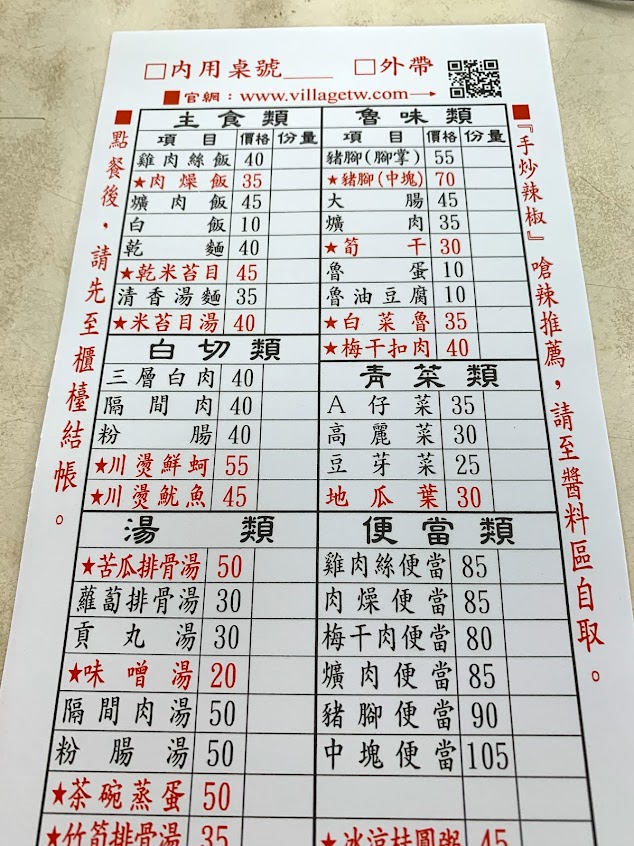 □內用桌號____ □外帶
■官網：www.villagetw.com→
■點餐後，請先至櫃檯結帳。
主食類
項目 價格 份量
雞肉絲飯 40
★肉燥飯 35
爌肉飯 45
白飯 10
乾麵 40
★乾米苔目 45
清香湯麵 35
★米苔目湯 40
白切類
三層白肉 40
隔間肉 40
粉腸 40
★川燙鮮蚵 55
★川燙魷魚 45
湯類
★苦瓜排骨湯 50
蘿蔔排骨湯 30
貢丸湯 30
★味噌湯 20
隔間肉湯 50
粉腸湯 50
★茶碗蒸蛋 50
★竹筍排骨湯 35
魯味類
項目 價格 份量
豬腳(腳掌) 55
★豬腳(中塊) 70
大腸 45
爌肉 35
★筍干 30
魯蛋 10
魯油豆腐 10
★白菜魯 35
★梅干扣肉 40
青菜類
A仔菜 35
高麗菜 30
豆芽菜 25
地瓜葉 30
便當類
雞肉絲便當 85
肉燥便當 85
梅干肉便當 80
爌肉便當 85
豬腳便當 90
中塊便當 105
★冰涼桂圓粥 45
■『手炒辣椒』嗆辣推薦，請至醬料區自取。